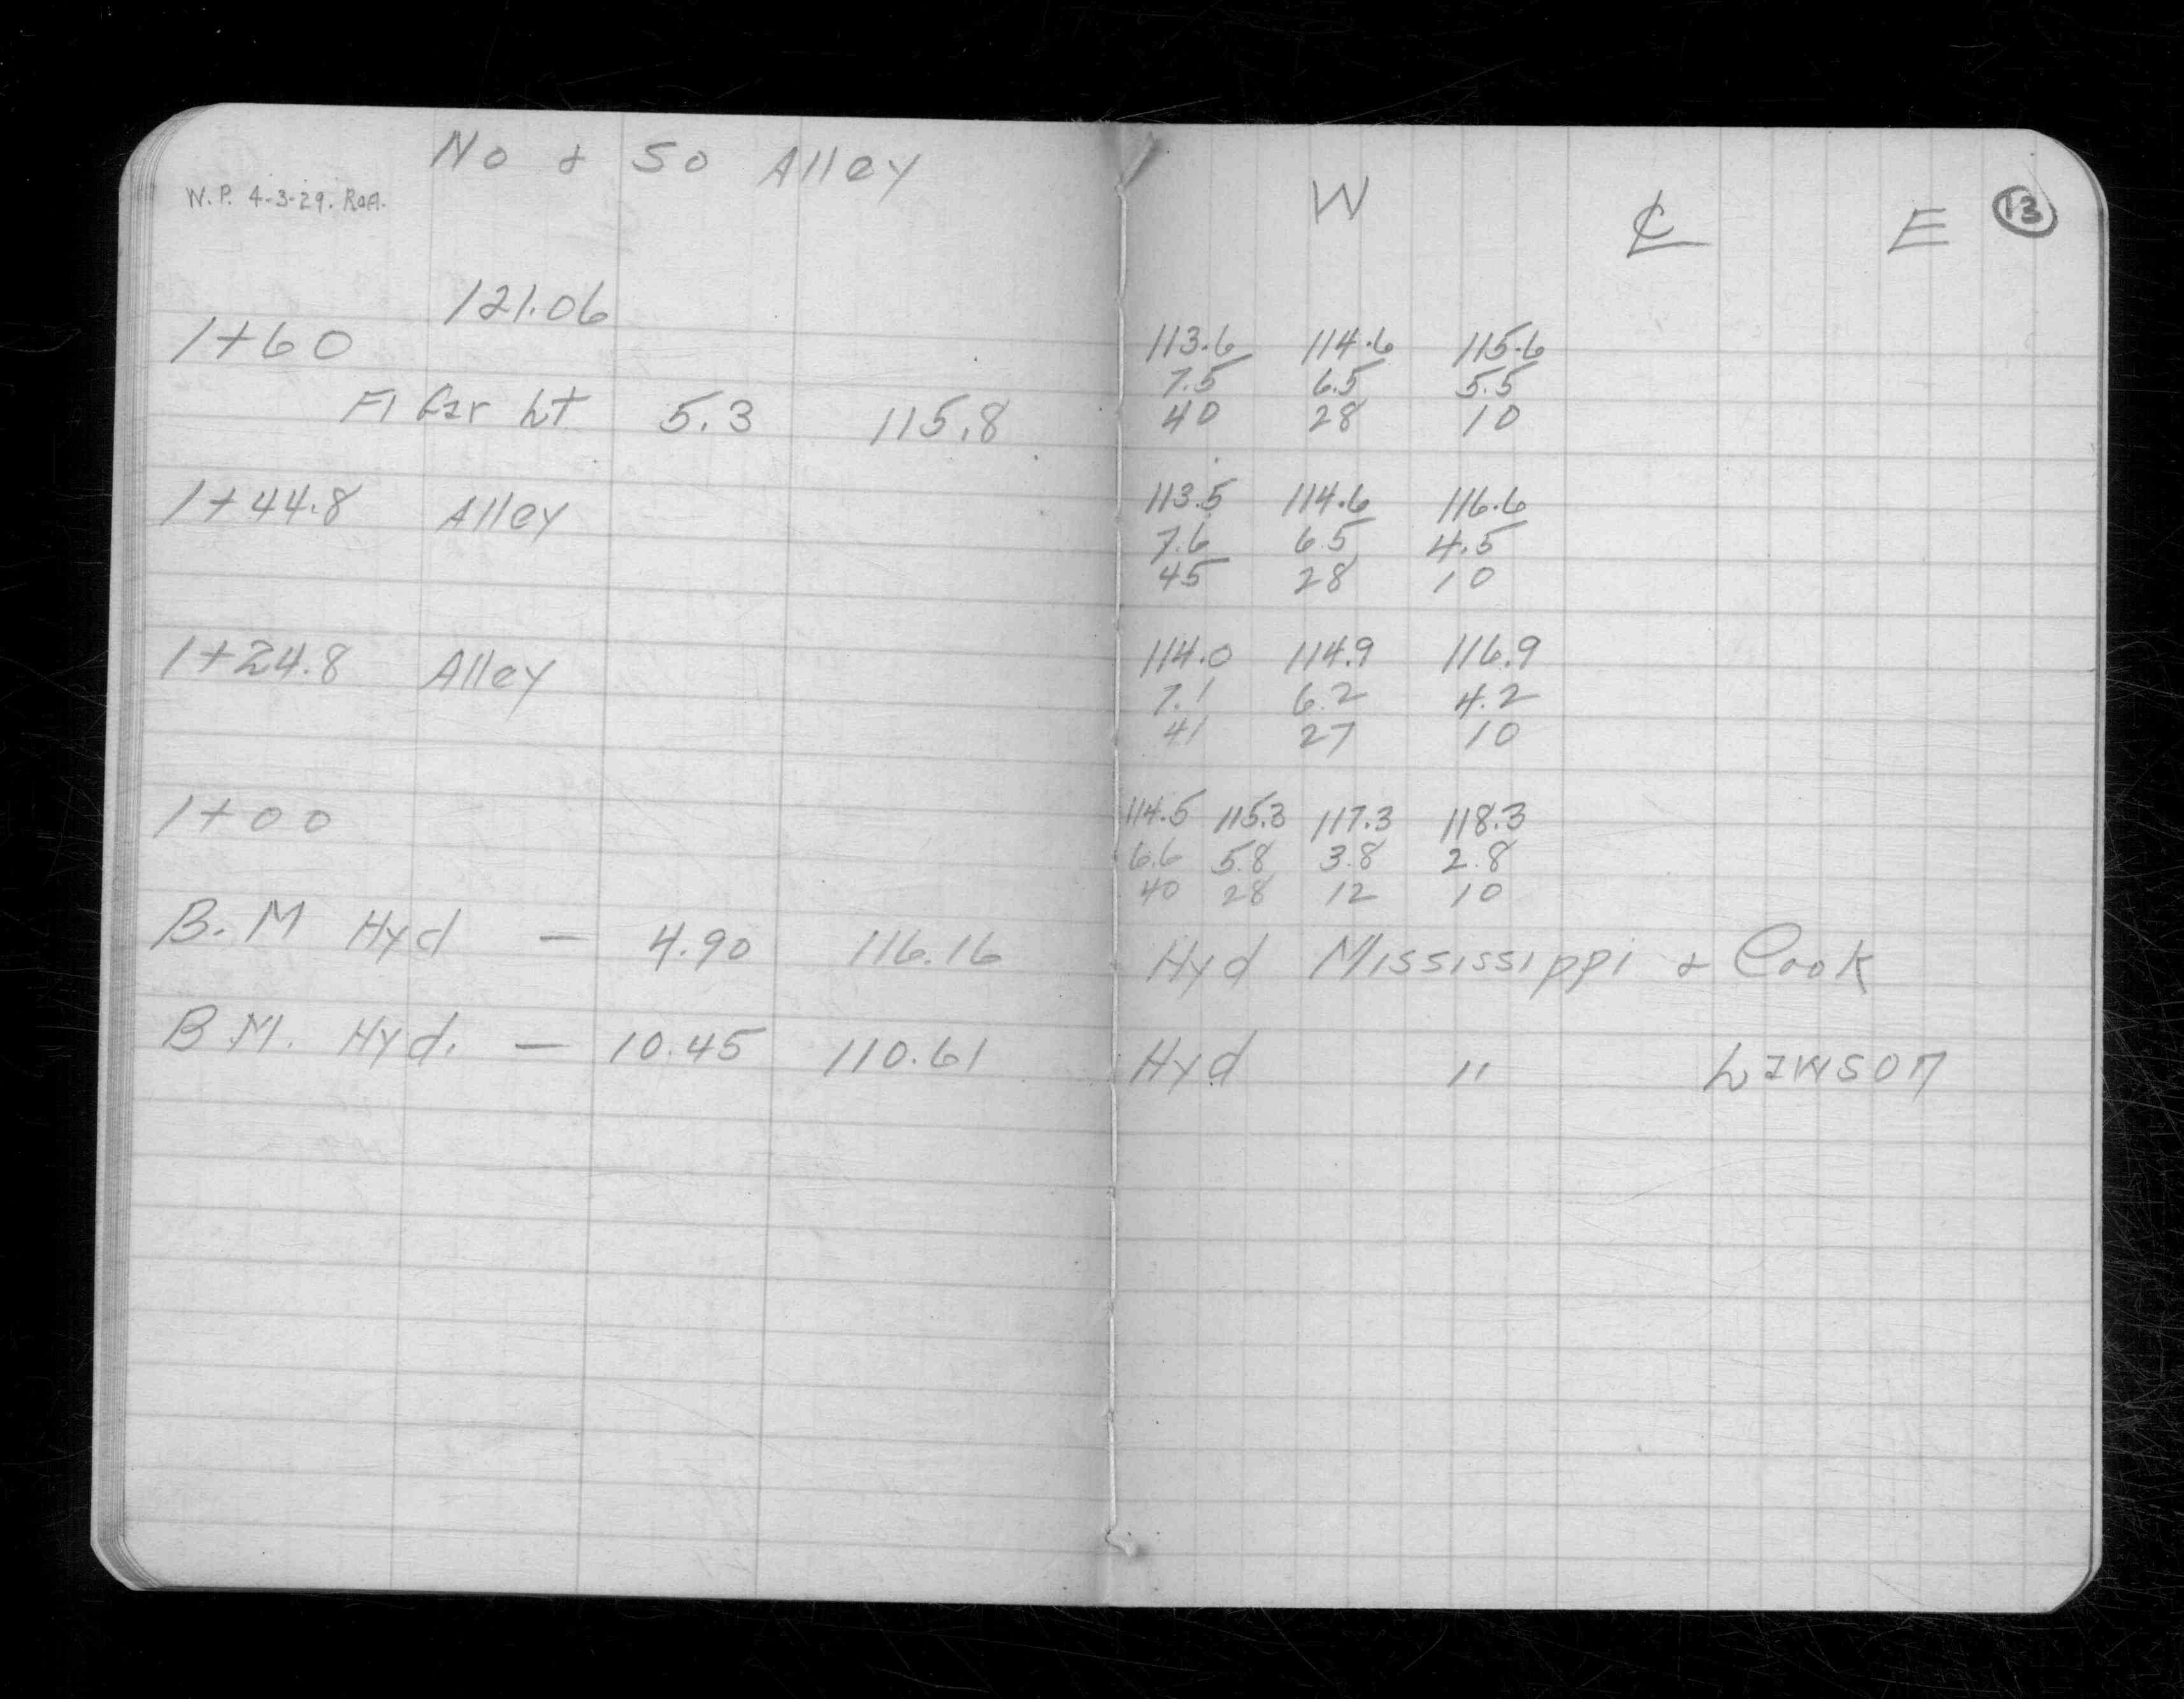 No & So Alley
W.P. 4-3-29. RoA.
121.06
1+60
Fl Gar Lt 5.3 115.8
1+44.8 Alley
1+24.8 Alley
1+00
B.M Hyd — 4.90 116.16
B.M. Hyd. — 10.45 110.61
W ℄ E 13
113.6 114.6 115.6
7.5 6.5 5.5
40 28 10
113.5 114.6 116.6
7.6 6.5 4.5
45 28 10
114.0 114.9 116.9
7.1 6.2 4.2
41 27 10
114.5 115.3 117.3 118.3
6.6 5.8 3.8 2.8
40 28 12 10
Hyd Mississippi & Cook
Hyd " Lawson